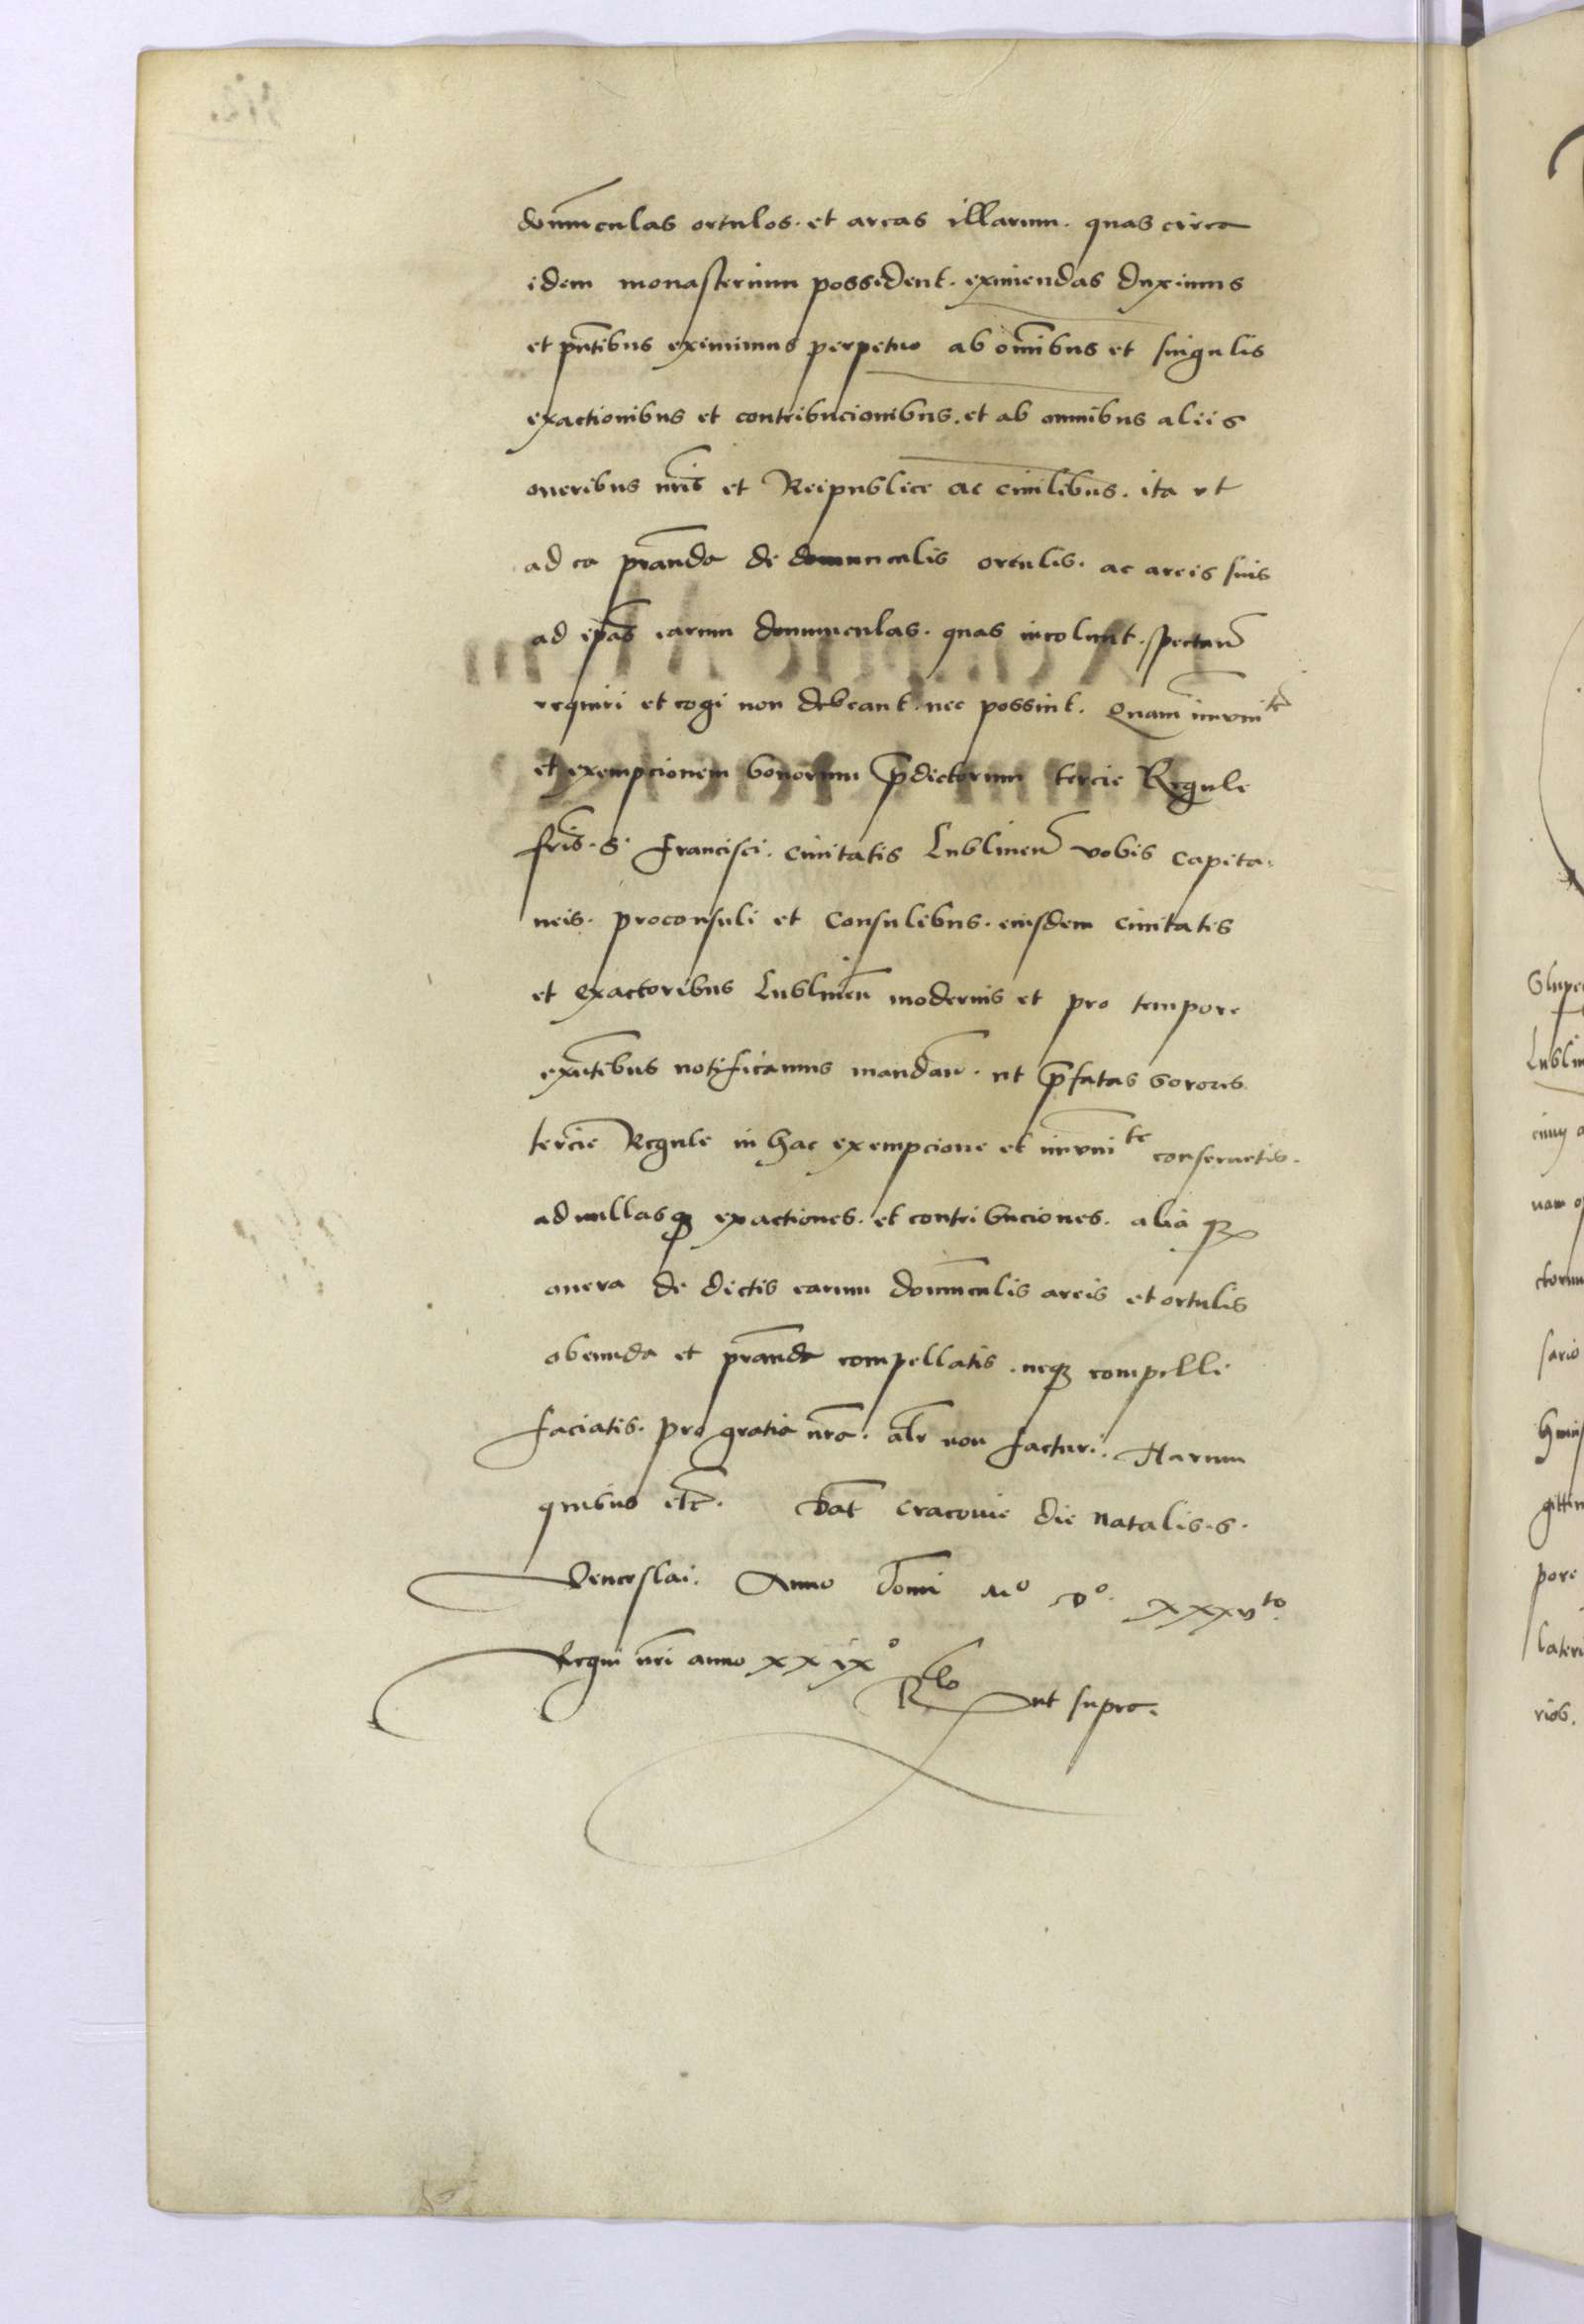 domunculas ortulos. et areas illarum. quas circa
idem monasterium possident. eximendas duximus
et pñtibus eximimus perpetuo ab oñibus et singulis
exactionibus et contribucionibus. et ab omnibus aliis
oneribus nris et Reipublice ac ciuilibus. ita vt
ad ea prãnda de domunculis ortulis. ac areis suis
ad ipãs earum domunculas. quas incolunt. spectañ
requiri et cogi non debeant. nec possint. Quam im̃unitẽ
et exempcionem bonorum p̃dictorum tercie Regule
fris. S. Francisci. ciuitatis Lublineñ vobis Capita-
neis. proconsuli et Consulibus. eiusdem ciuitatis
et exactoribus Lublineñ modernis et pro tempore
exñtibus notificamus mandañ. ut p̃fatas sorores
tercie Regule in hac exempcione et im̃unite conseruetis.
ad nullasq3 exactiones. et contribuciones. alia q3
onera de dictis earum domũculis areis et ortulis
obeunda et prãnda compellatis. neq3 compelli
faciatis. pro gratia nra. alr non facturi. Harum
quibus etc. Dat Cracouie die Natalis. S.
Venceslai. Anno Domi Mo Do. xxxvto
Regni nri anno xxixo
Rlo ut supra.